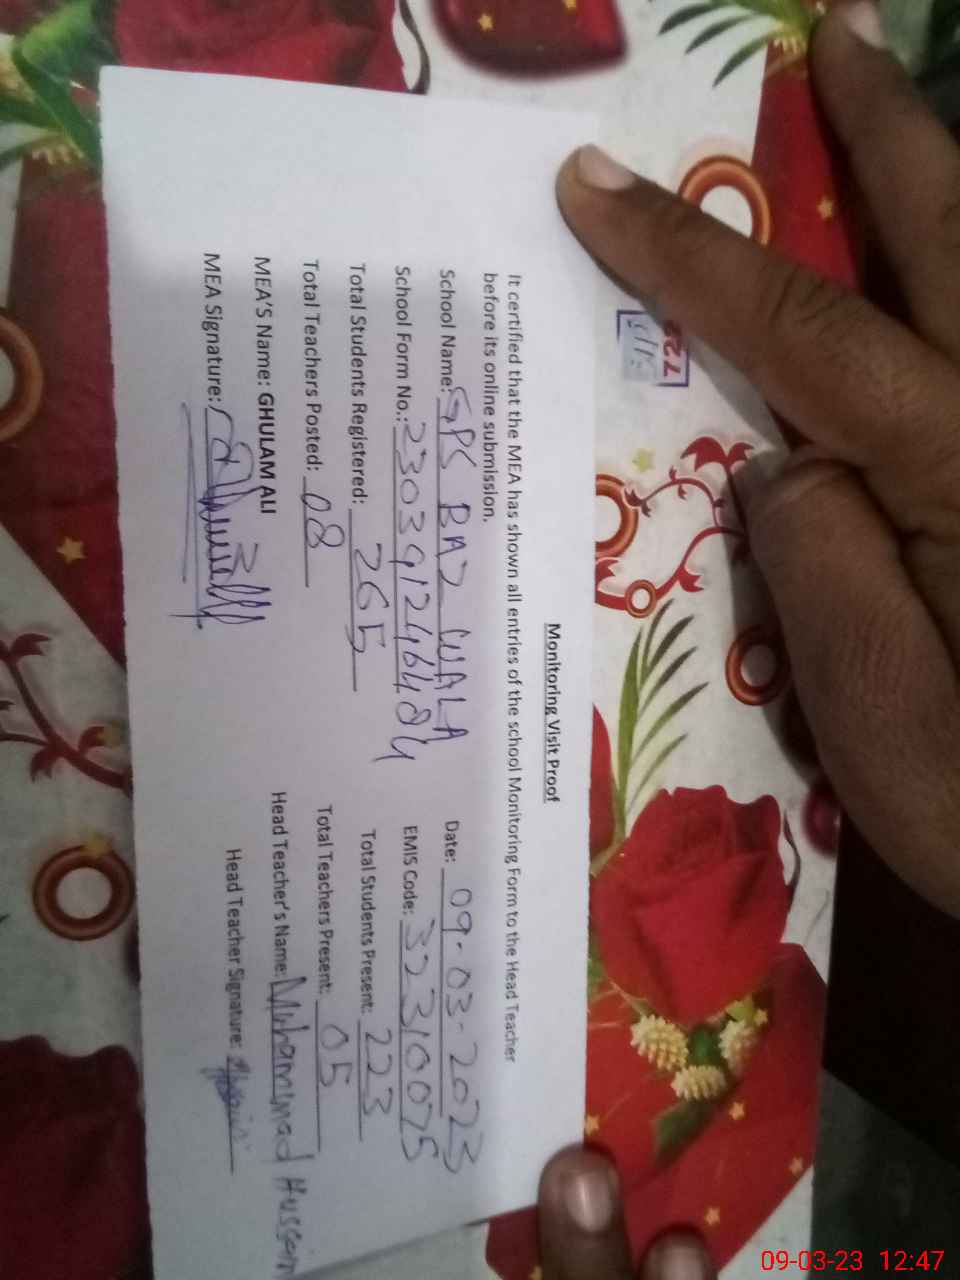 Monitoring Visit Proof
It certified that the MEA has shown all entries of the school Monitoring Form to the Head Teacher
before its online submission.
School Name: GPS BAJ WALA Date: 09-03-2023
School Form No.: 230391246484 EMIS Code: 32310075
Total Students Registered: 265 Total Students Present: 223
Total Teachers Posted: 08 Total Teachers Present: 05
MEA'S Name: GHULAM ALI Head Teacher's Name: Muhammad Hussain
MEA Signature: Head Teacher Signature:
09-03-23 12:47